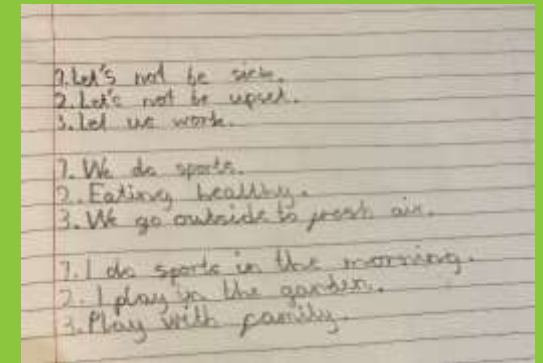 1. Let's not be sick.
2. Let's not be upset.
3. Let us work.
1. We do sports.
2. Eating healthy.
3. We go outside to fresh air.
1. I do sports in the morning.
2. I play in the garden.
3. Play with family.